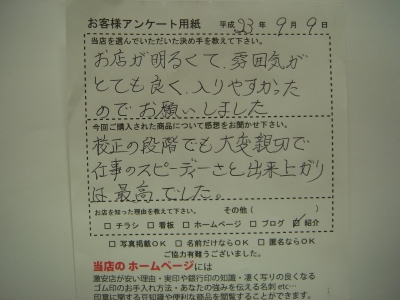 お客様アンケート用紙 平成23年9月9日
当店を選んでいただいた決め手を教えて下さい。
お店が明るくて、雰囲気が
とても良く、入りやすかった
のでお願いしました
今回ご購入された商品について感想をお聞かせ下さい。
校正の段階でも大変親切で
仕事のスピーディーさと出来上がり
は最高でした。
お店を知った理由を教えて下さい。 その他( )
□チラシ □看板 □ホームページ □ブログ ☑紹介
□写真掲載OK □名前だけならOK □匿名ならOK
ご協力有難うございました。
当店のホームページには
激安店が安い理由・実印や銀行印の知識・凄く写りの良くなる
ゴム印のお手入れ方法・あなたの強みを伝える名刺etc…
印章に関する豆知識や便利な商品を閲覧することができます。